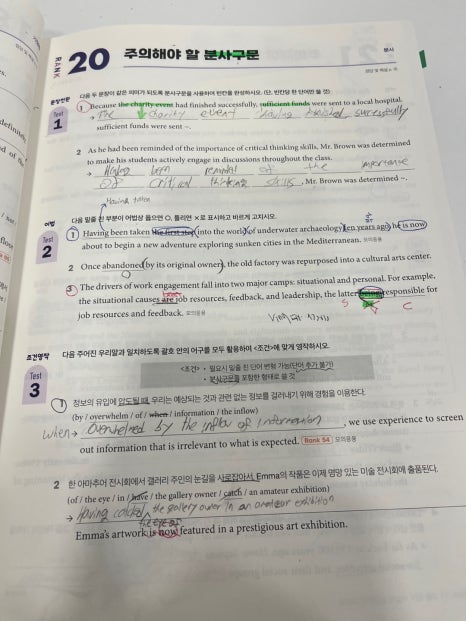 RANK 20 주의해야 할 분사구문
분사
문장전환 다음 두 문장이 같은 의미가 되도록 분사구문을 사용하여 빈칸을 완성하시오. (단, 빈칸당 한 단어만 쓸 것)
Test 1
1 Because the charity event had finished successfully, sufficient funds were sent to a local hospital.
→ The charity event having finished successfully
sufficient funds were sent ~.
2 As he had been reminded of the importance of critical thinking skills, Mr. Brown was determined
to make his students actively engage in discussions throughout the class.
→ Having been reminded of the importance
of critical thinking skills, Mr. Brown was determined ~.
Having taken
어법 다음 밑줄 친 부분이 어법상 옳으면 ○, 틀리면 ×로 표시하고 바르게 고치시오.
Test 2
1 Having been taken the first step into the world of underwater archaeology ten years ago, he is now
about to begin a new adventure exploring sunken cities in the Mediterranean. 모의응용
2 Once abandoned by its original owner, the old factory was repurposed into a cultural arts center.
3 The drivers of work engagement fall into two major camps: situational and personal. For example,
the situational causes are job resources, feedback, and leadership, the latter being responsible for
job resources and feedback. 모의응용
S V C
조건영작 다음 주어진 우리말과 일치하도록 괄호 안의 어구를 모두 활용하여 <조건>에 맞게 영작하시오.
Test 3
<조건> • 필요시 밑줄 친 단어 변형 가능(단어 추가 불가)
• 분사구문을 포함한 형태로 쓸 것
1 정보의 유입에 압도될 때, 우리는 예상되는 것과 관련 없는 정보를 걸러내기 위해 경험을 이용한다.
(by / overwhelm / of / when / information / the inflow)
When → Overwhelmed by the inflow of information, we use experience to screen
out information that is irrelevant to what is expected. Rank 54 모의응용
2 한 아마추어 전시회에서 갤러리 주인의 눈길을 사로잡아서, Emma의 작품은 이제 명망 있는 미술 전시회에 출품된다.
(of / the eye / in / have / the gallery owner / catch / an amateur exhibition)
→ Having catched the gallery owner in an amateur exhibition
the eye of
Emma's artwork is now featured in a prestigious art exhibition.